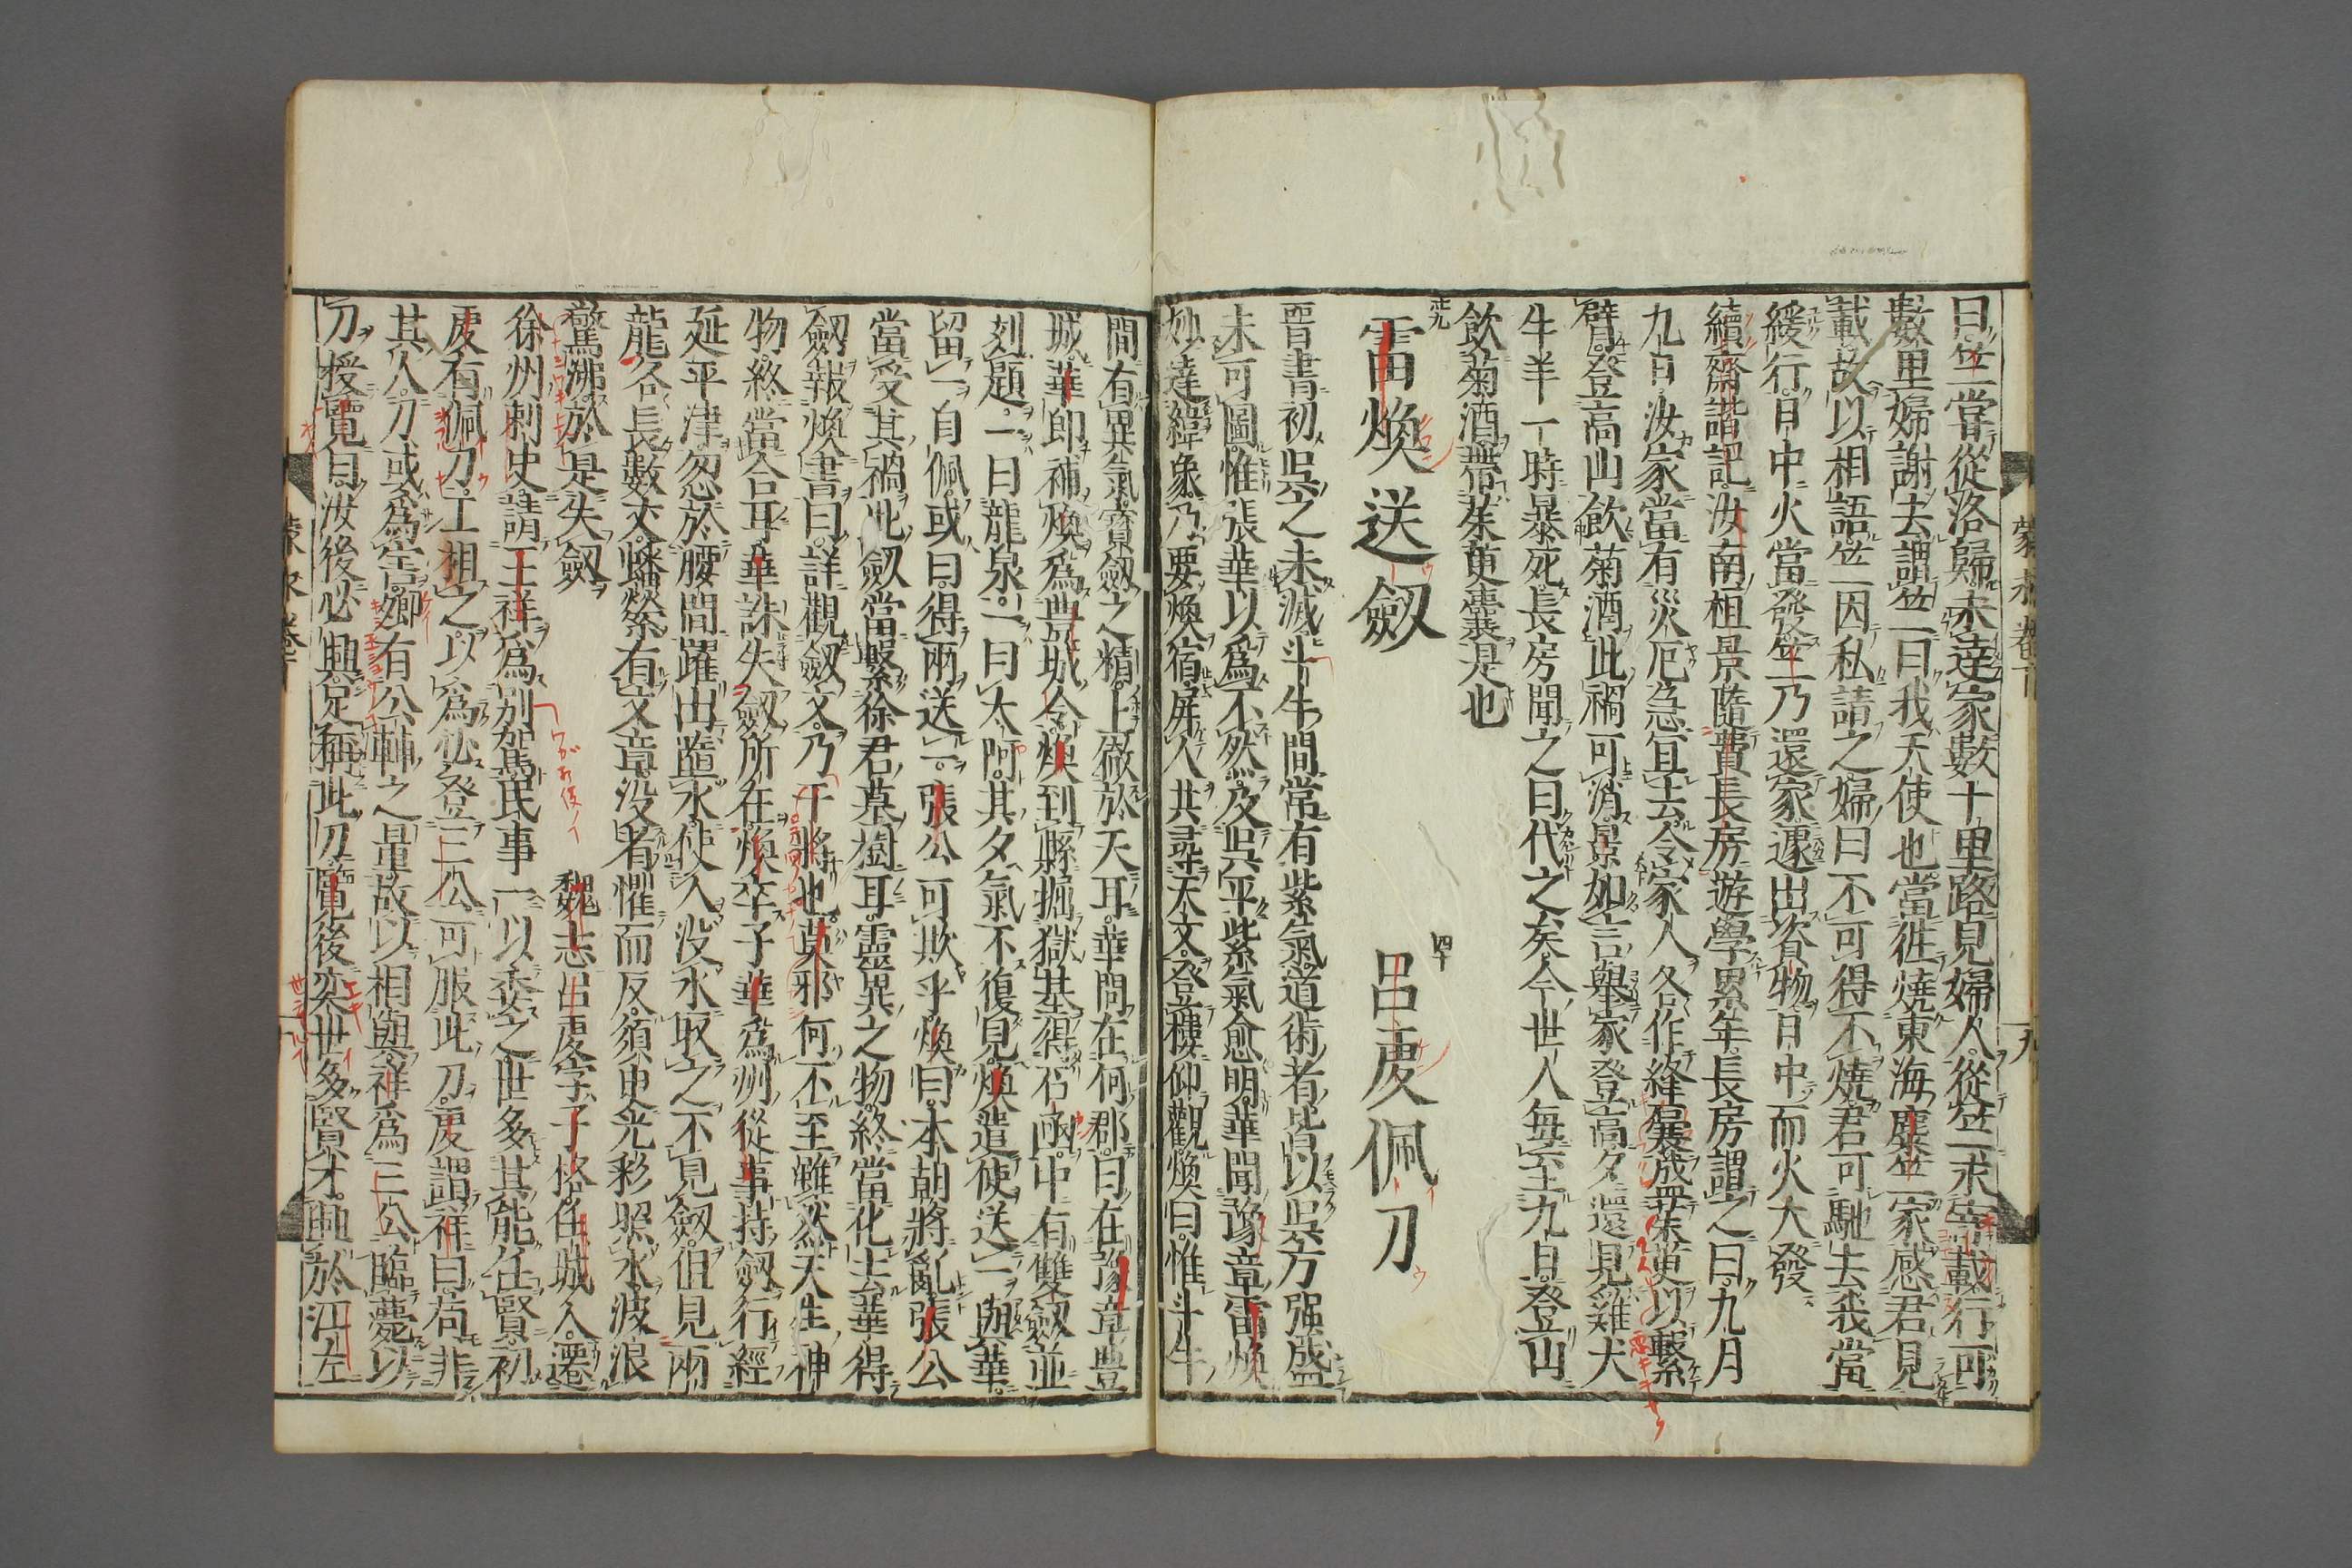 曰竺嘗從洛歸未達家數十里路見婦人從竺求寄載行可
數里婦謝去謂竺曰我天使也當往燒東海麋竺家感君見
載故以相語竺因私請之婦曰不可得不燒君可馳去我當
緩行日中火當發竺乃還家遽出資物日中而火大發
續齊諧記汝南桓景隨費長房遊學累年長房謂之曰九月
九日汝家當有災厄急宜去令家人各作絳囊盛茱萸以繫
臂登高山飲菊酒此禍可消景如言舉家登高夕還見雞犬
牛羊一時暴死長房聞之曰代之矣今世人每至九日登山
飲菊酒帶茱萸囊是也
卅九
雷煥送劔
四十
呂虔佩刀
晉書初吳之未滅斗牛間常有紫氣道術者皆以吳方强盛
未可圖惟張華以爲不然及吳平紫氣愈明華聞豫章雷煥
妙達緯象乃要煥宿屏人共尋天文登樓仰觀煥曰惟斗牛
蒙求卷下
十九
間有異氣寶劔之精上徹於天耳華問在何郡曰在豫章豐
城華即補煥爲豐城令煥到縣掘獄基得石函中有雙劔並
刻題一曰龍泉一曰太阿其夕氣不復見煥遣使送一與華
留一自佩或曰得兩送一張公可欺乎煥曰本朝將亂張公
當受其禍此劔當繫徐君墓樹耳靈異之物終當化去華得
劔報煥書曰詳觀劔文乃干將也莫邪何不至雖然天生神
物終當合耳華誅失劔所在煥卒子華爲州從事持劔行經
延平津忽於腰間躍出墮水使入没水取之不見劔但見兩
龍各長數丈蟠縈有文章没者懼而反須臾光彩照水波浪
驚沸於是失劔
魏志呂虔字子恪任城人遷
徐州刺史請王祥爲別駕民事一以委之世多其能任賢初
虔有佩刀工相之以爲必登三公可服此刀虔謂祥曰苟非
其人刀或爲害卿有公輔之量故以相與祥爲三公臨薨以
刀授覽曰汝後必興足稱此刀覽後奕世多賢才興於江左
蒙求卷下